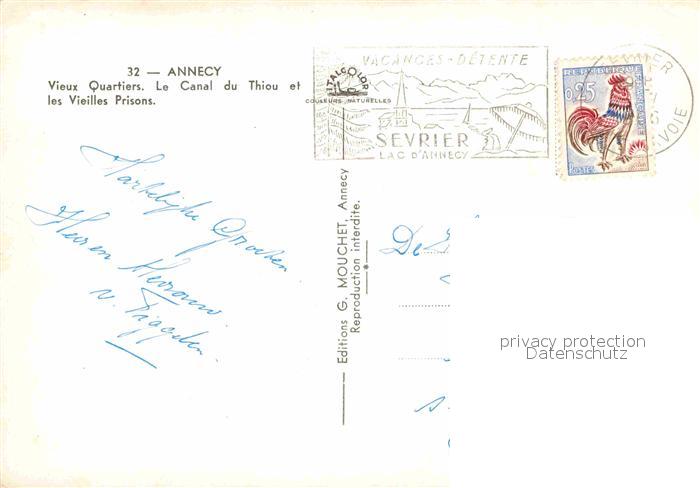 32 — ANNECY
Vieux Quartiers. Le Canal du Thiou et
les Vieilles Prisons.
ITALCOLOR
COULEURS NATURELLES
VACANCES - DÉTENTE
SEVRIER
LAC D'ANNECY
REPUBLIQUE FRANÇAISE
0,25
POSTES
SEVRIER
SAVOIE
Hartelijke Groeten
Heeren
v.
De
Editions G. MOUCHET, Annecy
Reproduction interdite.
privacy protection
Datenschutz